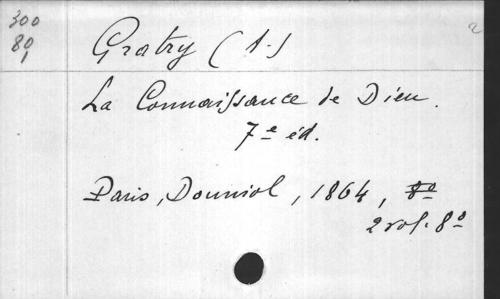 300
80
1
Gratry (A.)
2
La Connaissance de Dieu.
7e éd.
Paris, Douniol, 1864, 8º
2 vol. 8º